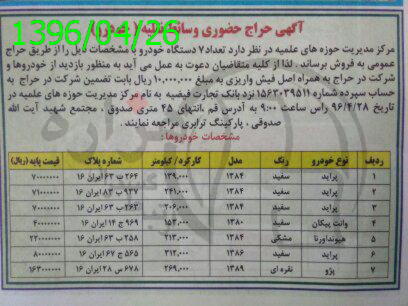 آگهی حراج حضوری وسائط نقلیه (خودرو)
1396/04/26
مرکز مدیریت حوزه های علمیه در نظر دارد تعداد ۷ دستگاه خودرو با مشخصات ذیل را از طریق حراج
عمومی به فروش برساند. لذا از کلیه متقاضیان دعوت به عمل می آید به منظور بازدید از خودروها و
شرکت در حراج به همراه اصل فیش واریزی به مبلغ ۱۰,۰۰۰,۰۰۰ ریال بابت تضمین شرکت در حراج به
حساب سپرده شماره ۱۵۶۳۰۳۹۵۱۱ نزد بانک تجارت فیضیه به نام مرکز مدیریت حوزه های علمیه در
تاریخ ۹۶/۴/۲۸ راس ساعت ۹:۰۰ به آدرس قم ،انتهای ۴۵ متری صدوق ، مجتمع شهید آیت الله
صدوقی ، پارکینگ ترابری مراجعه نمایند .
مشخصات خودروها:
ردیف نوع خودرو رنگ مدل کارکرد/ کیلومتر شماره پلاک قیمت پایه (ریال)
۱ پراید سفید ۱۳۸۴ ۱۳۹,۰۰۰ ۲۶۴ ت ۶۳ ایران ۱۶ ۷۰۰۰۰۰۰۰
۲ پراید سفید ۱۳۸۴ ۲۴۱,۰۰۰ ۹۳۷ ب ۸۳ ایران ۱۶ ۷۱۰۰۰۰۰۰
۳ پراید سفید ۱۳۸۴ ۲۰۶,۰۰۰ ۲۶۳ ب ۶۳ ایران ۱۶ ۷۰۰۰۰۰۰۰
۴ وانت پیکان سفید ۱۳۸۰ ۱۵۳,۰۰۰ ۹۶۹ ج ۱۴ ایران ۱۶ ۴۰۰۰۰۰۰۰
۵ هیوندا ورنا مشکی ۱۳۸۴ ۲۱۳,۰۰۰ ۲۵۸ ب ۶۳ ایران ۱۶ ۲۲۰۰۰۰۰۰۰
۶ پراید سفید ۱۳۸۶ ۳۱۲,۰۰۰ ۵۶۵ ج ۶۷ ایران ۱۶ ۸۰۰۰۰۰۰۰
۷ پژو نقره ای ۱۳۸۹ ۲۶۹,۰۰۰ ۶۷۸ س ۲۸ ایران ۱۶ ۱۶۳۰۰۰۰۰۰